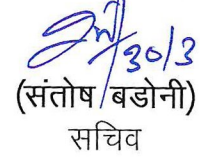 30/3
(संतोष बडोनी)
सचिव